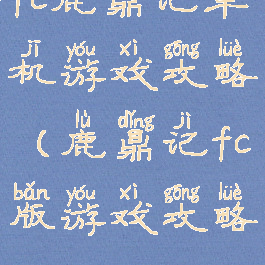 fc鹿鼎记单
jī yóu xì gōng lüè
机游戏攻略
lù dǐng jì
(鹿鼎记fc
bǎn yóu xì gōng lüè
版游戏攻略